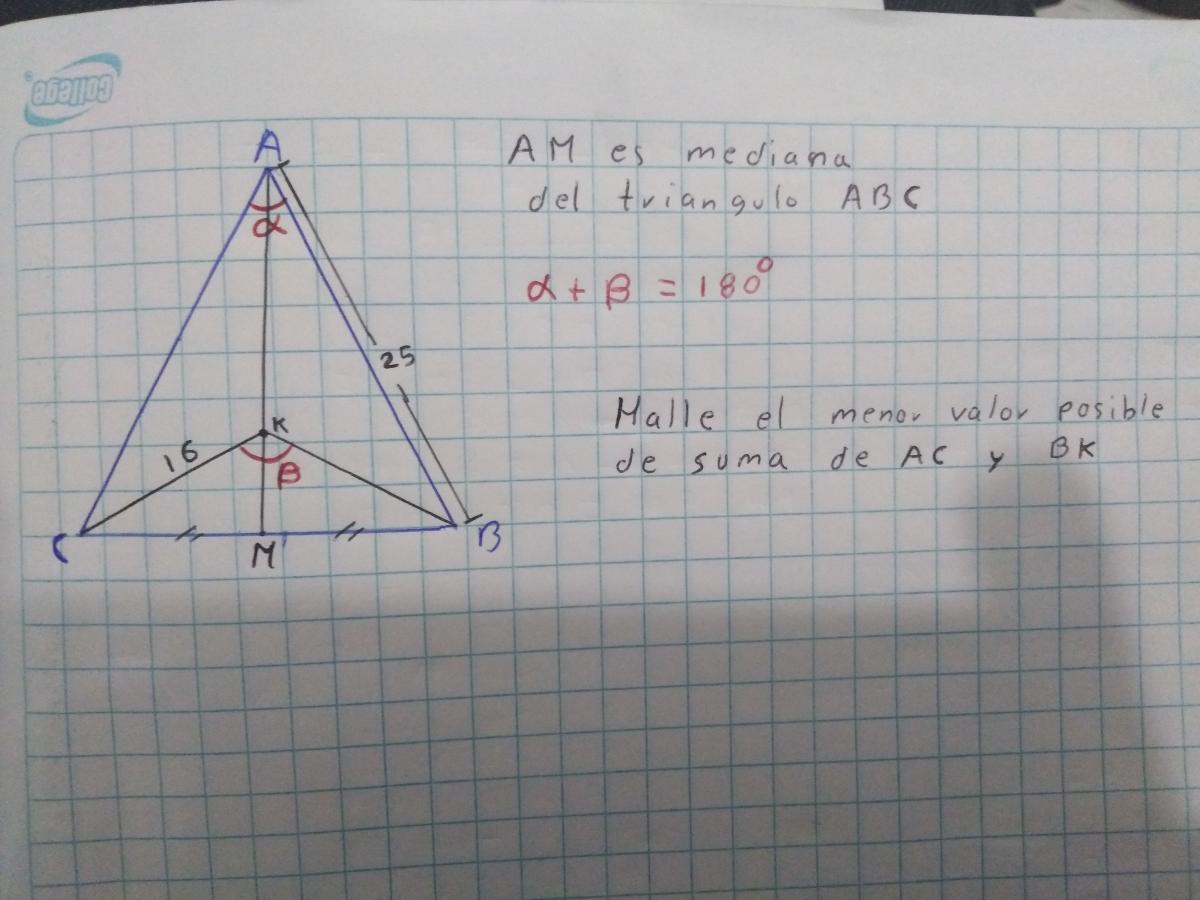 college®
A
AM es mediana
del triangulo ABC
α
α + β = 180°
25
Halle el menor valor posible
de suma de AC y BK
K
16
β
C
M
B